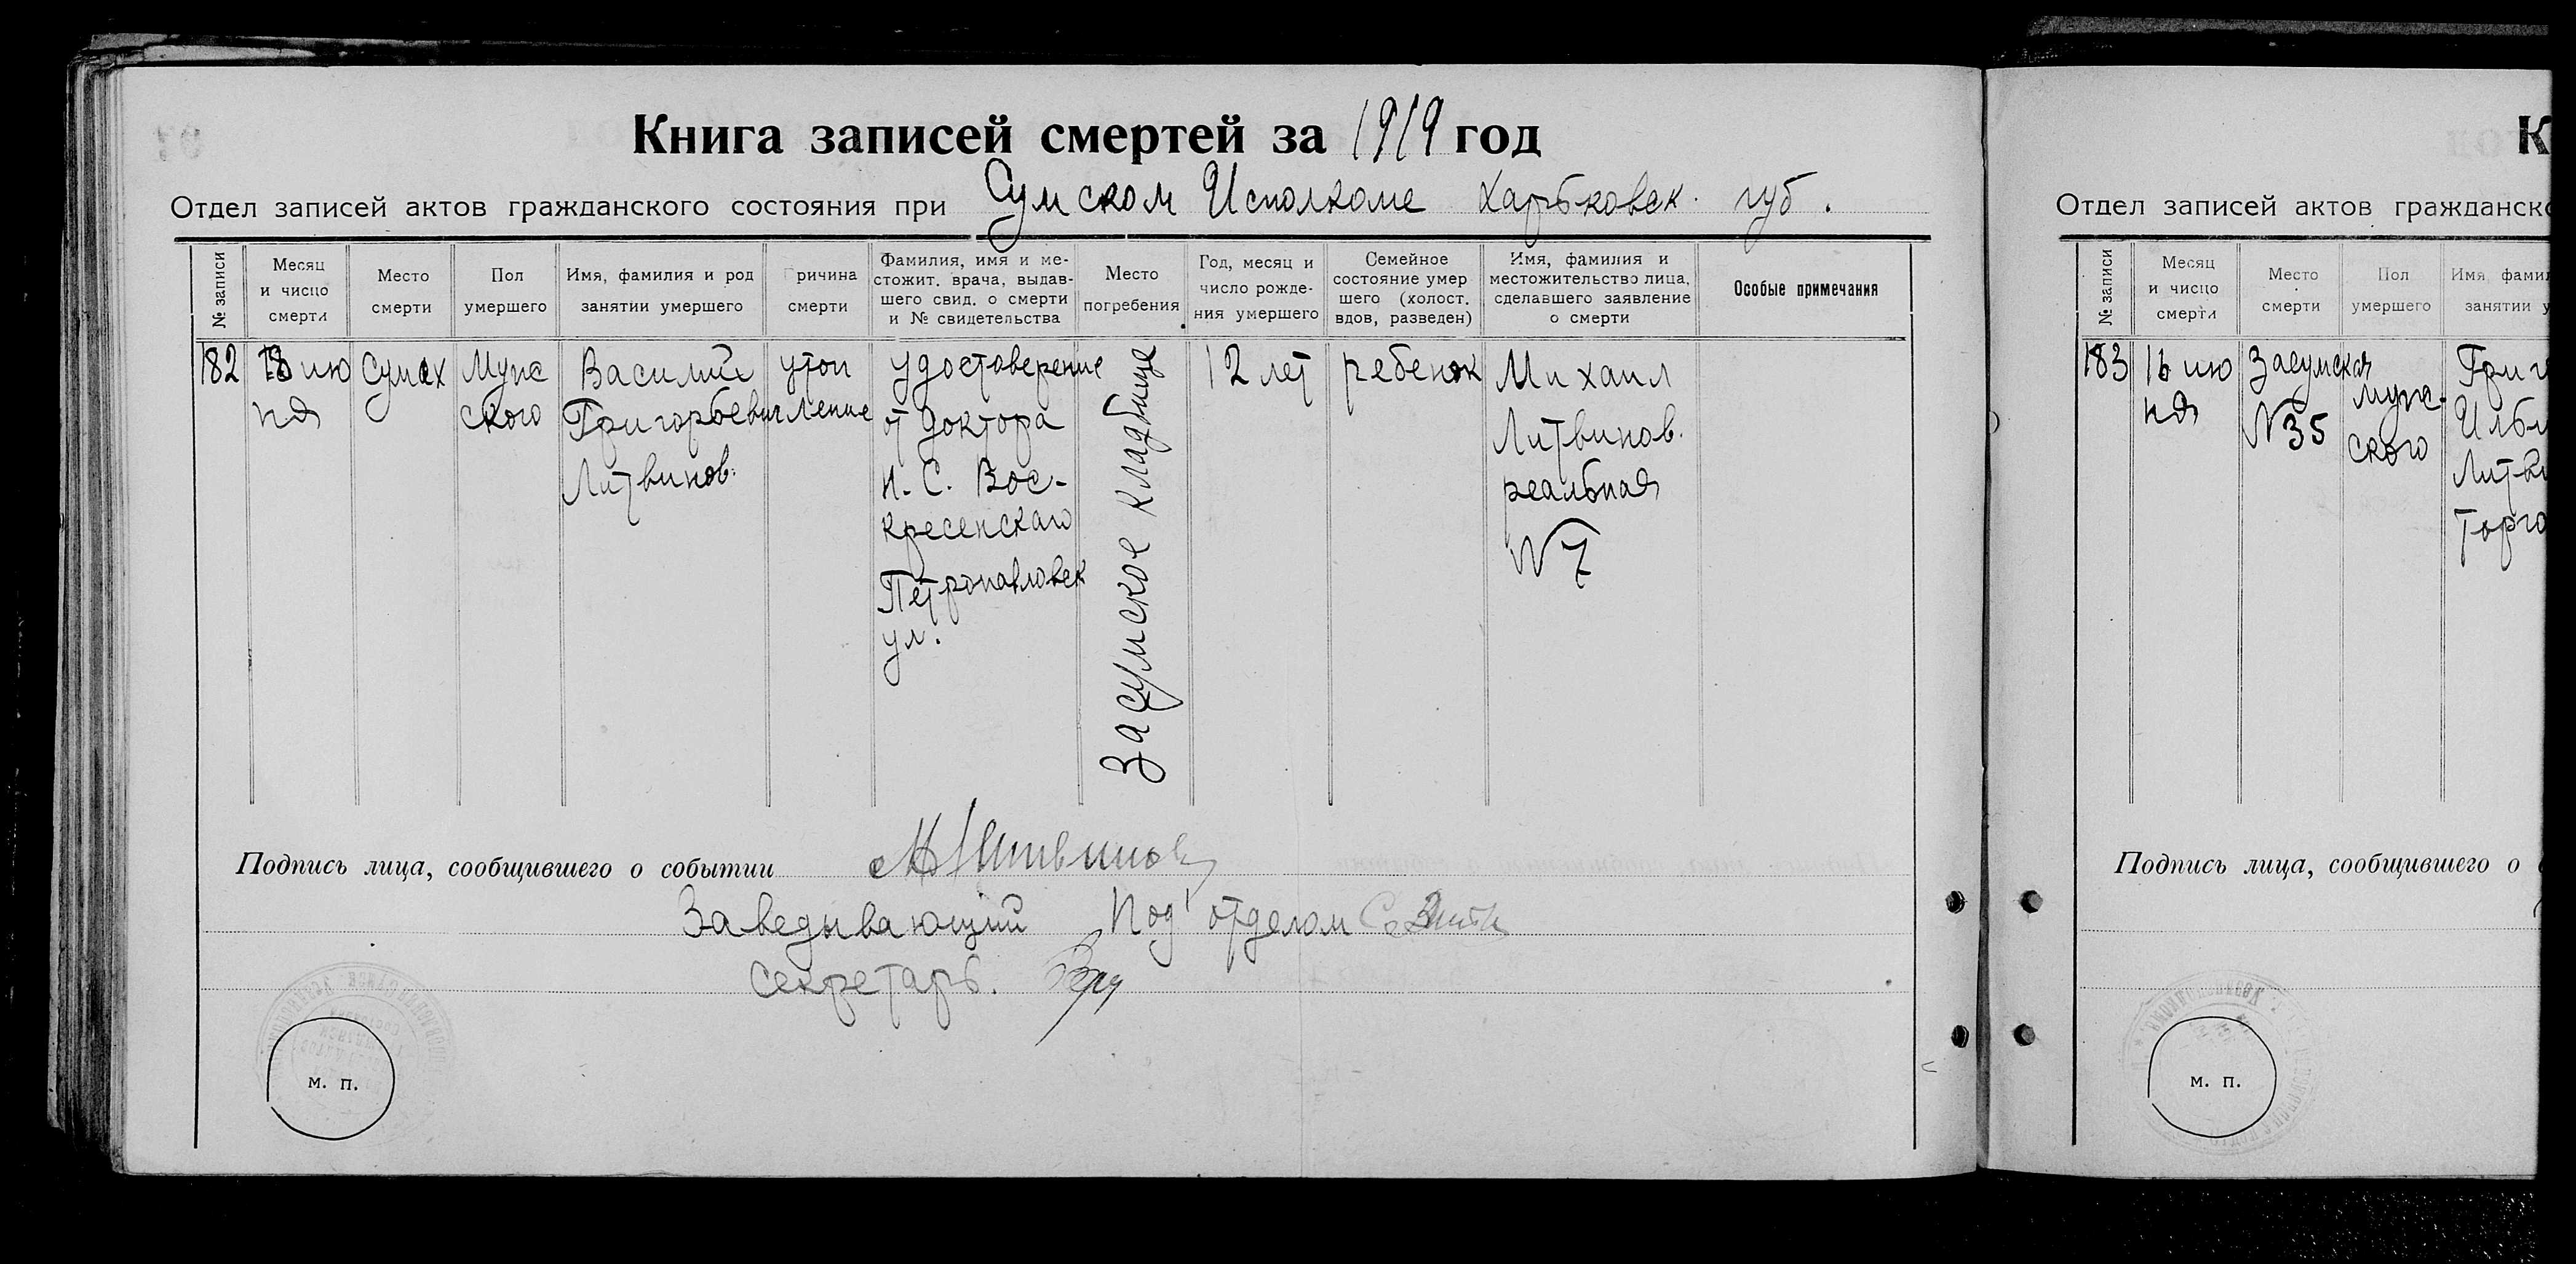 Книга записей смертей за 1919 год
Отдел записей актов гражданского состояния при Сумском Исполкоме Харьковск. губ.
№ записи
Месяц
и число
смерти
Место
смерти
Пол
умершего
Имя, фамилия и род
занятии умершего
Причина
смерти
Фамилия, имя и ме-
стожит. врача, выдав-
шего свид. о смерти
и № свидетельства
Место
погребения
Год, месяц и
число рожде-
ния умершего
Семейное
состояние умер
шего (холост.
вдов, разведен)
Имя, фамилия и
местожительство лица,
сделавшего заявление
о смерти
Особые примечания
182
ию
ня
Сумах
Мужс
ского
Василий
Григорьевич
Литвинов.
утоп
ление
удостоверение
от доктора
Н. С. Вос-
кресенскаго
Петропавловск
ул.
Засумское кладбище
12 лет
ребенок
Михаил
Литвинов.
реальная
№ 7
Подпись лица, сообщившего о событии М Литвинов
Заведывающий Под'отделом
Секретарь.
м. п.
К
Отдел записей актов гражданско
№ записи
Месяц
и число
смерти
Место
смерти
Пол
умершего
Имя, фамил
занятии у
183
16 ию
ня
Засумская
№ 35
мужс-
ского
Григ
Ильи
Литви
Торго
Подпись лица, сообщившего о
м. п.